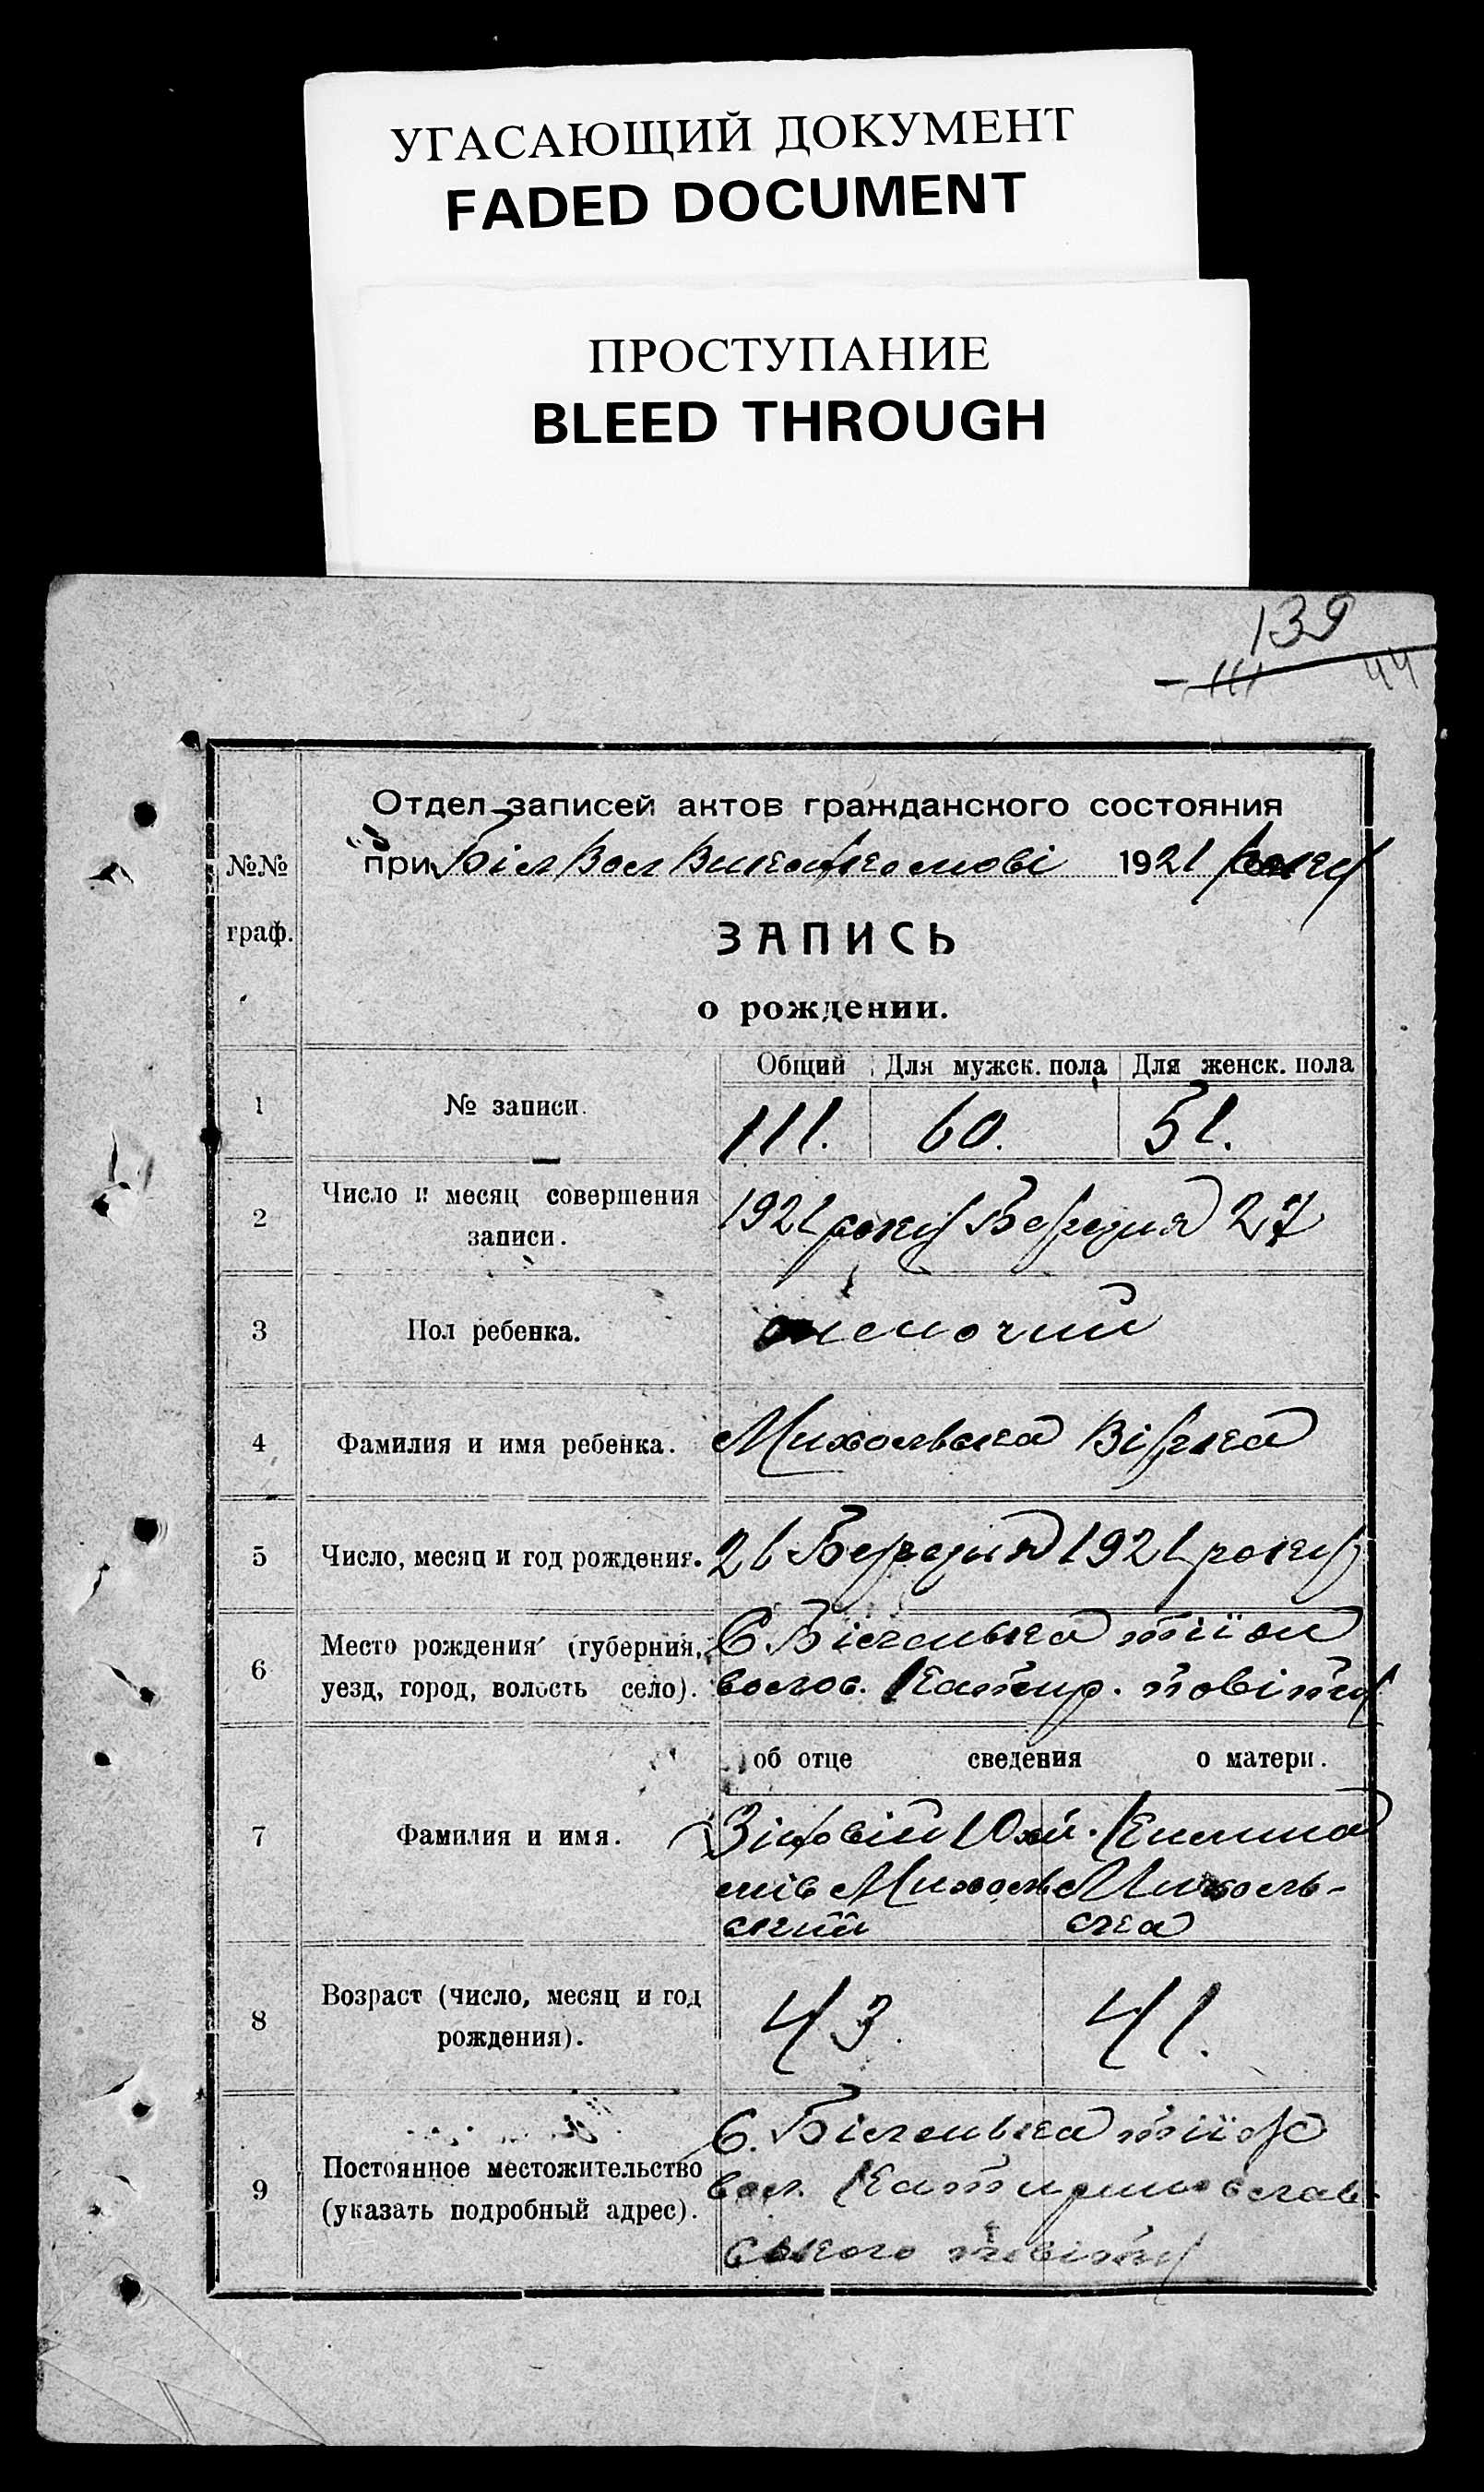 УГАСАЮЩИЙ ДОКУМЕНТ
FADED DOCUMENT
ПРОСТУПАНИЕ
BLEED THROUGH
139
111 44
Отдел записей актов гражданского состояния
№№ при Біл Вол Виконкомові 1921 року
граф.
ЗАПИСЬ
о рождении.
Общий Для мужск. пола Для женск. пола
1 № записи. 111. 60. 51.
2 Число и месяц совершения записи. 1921 року Березня 27
3 Пол ребенка. жіночий
4 Фамилия и имя ребенка. Михольска Вірка
5 Число, месяц и год рождения. 26 Березня 1921 року
6 Место рождения (губерния, С Біленька тіїж
уезд, город, волость село). волос. Катир. повіту
об отце сведения о матери.
7 Фамилия и имя. Зіновій Юхи- Килина
мів Михоль Михоль-
ский ска
8 Возраст (число, месяц и год рождения). 43. 41.
9 Постоянное местожительство С. Біленька тіїж
(указать подробный адрес). вол. Катиринослав-
ського повіту